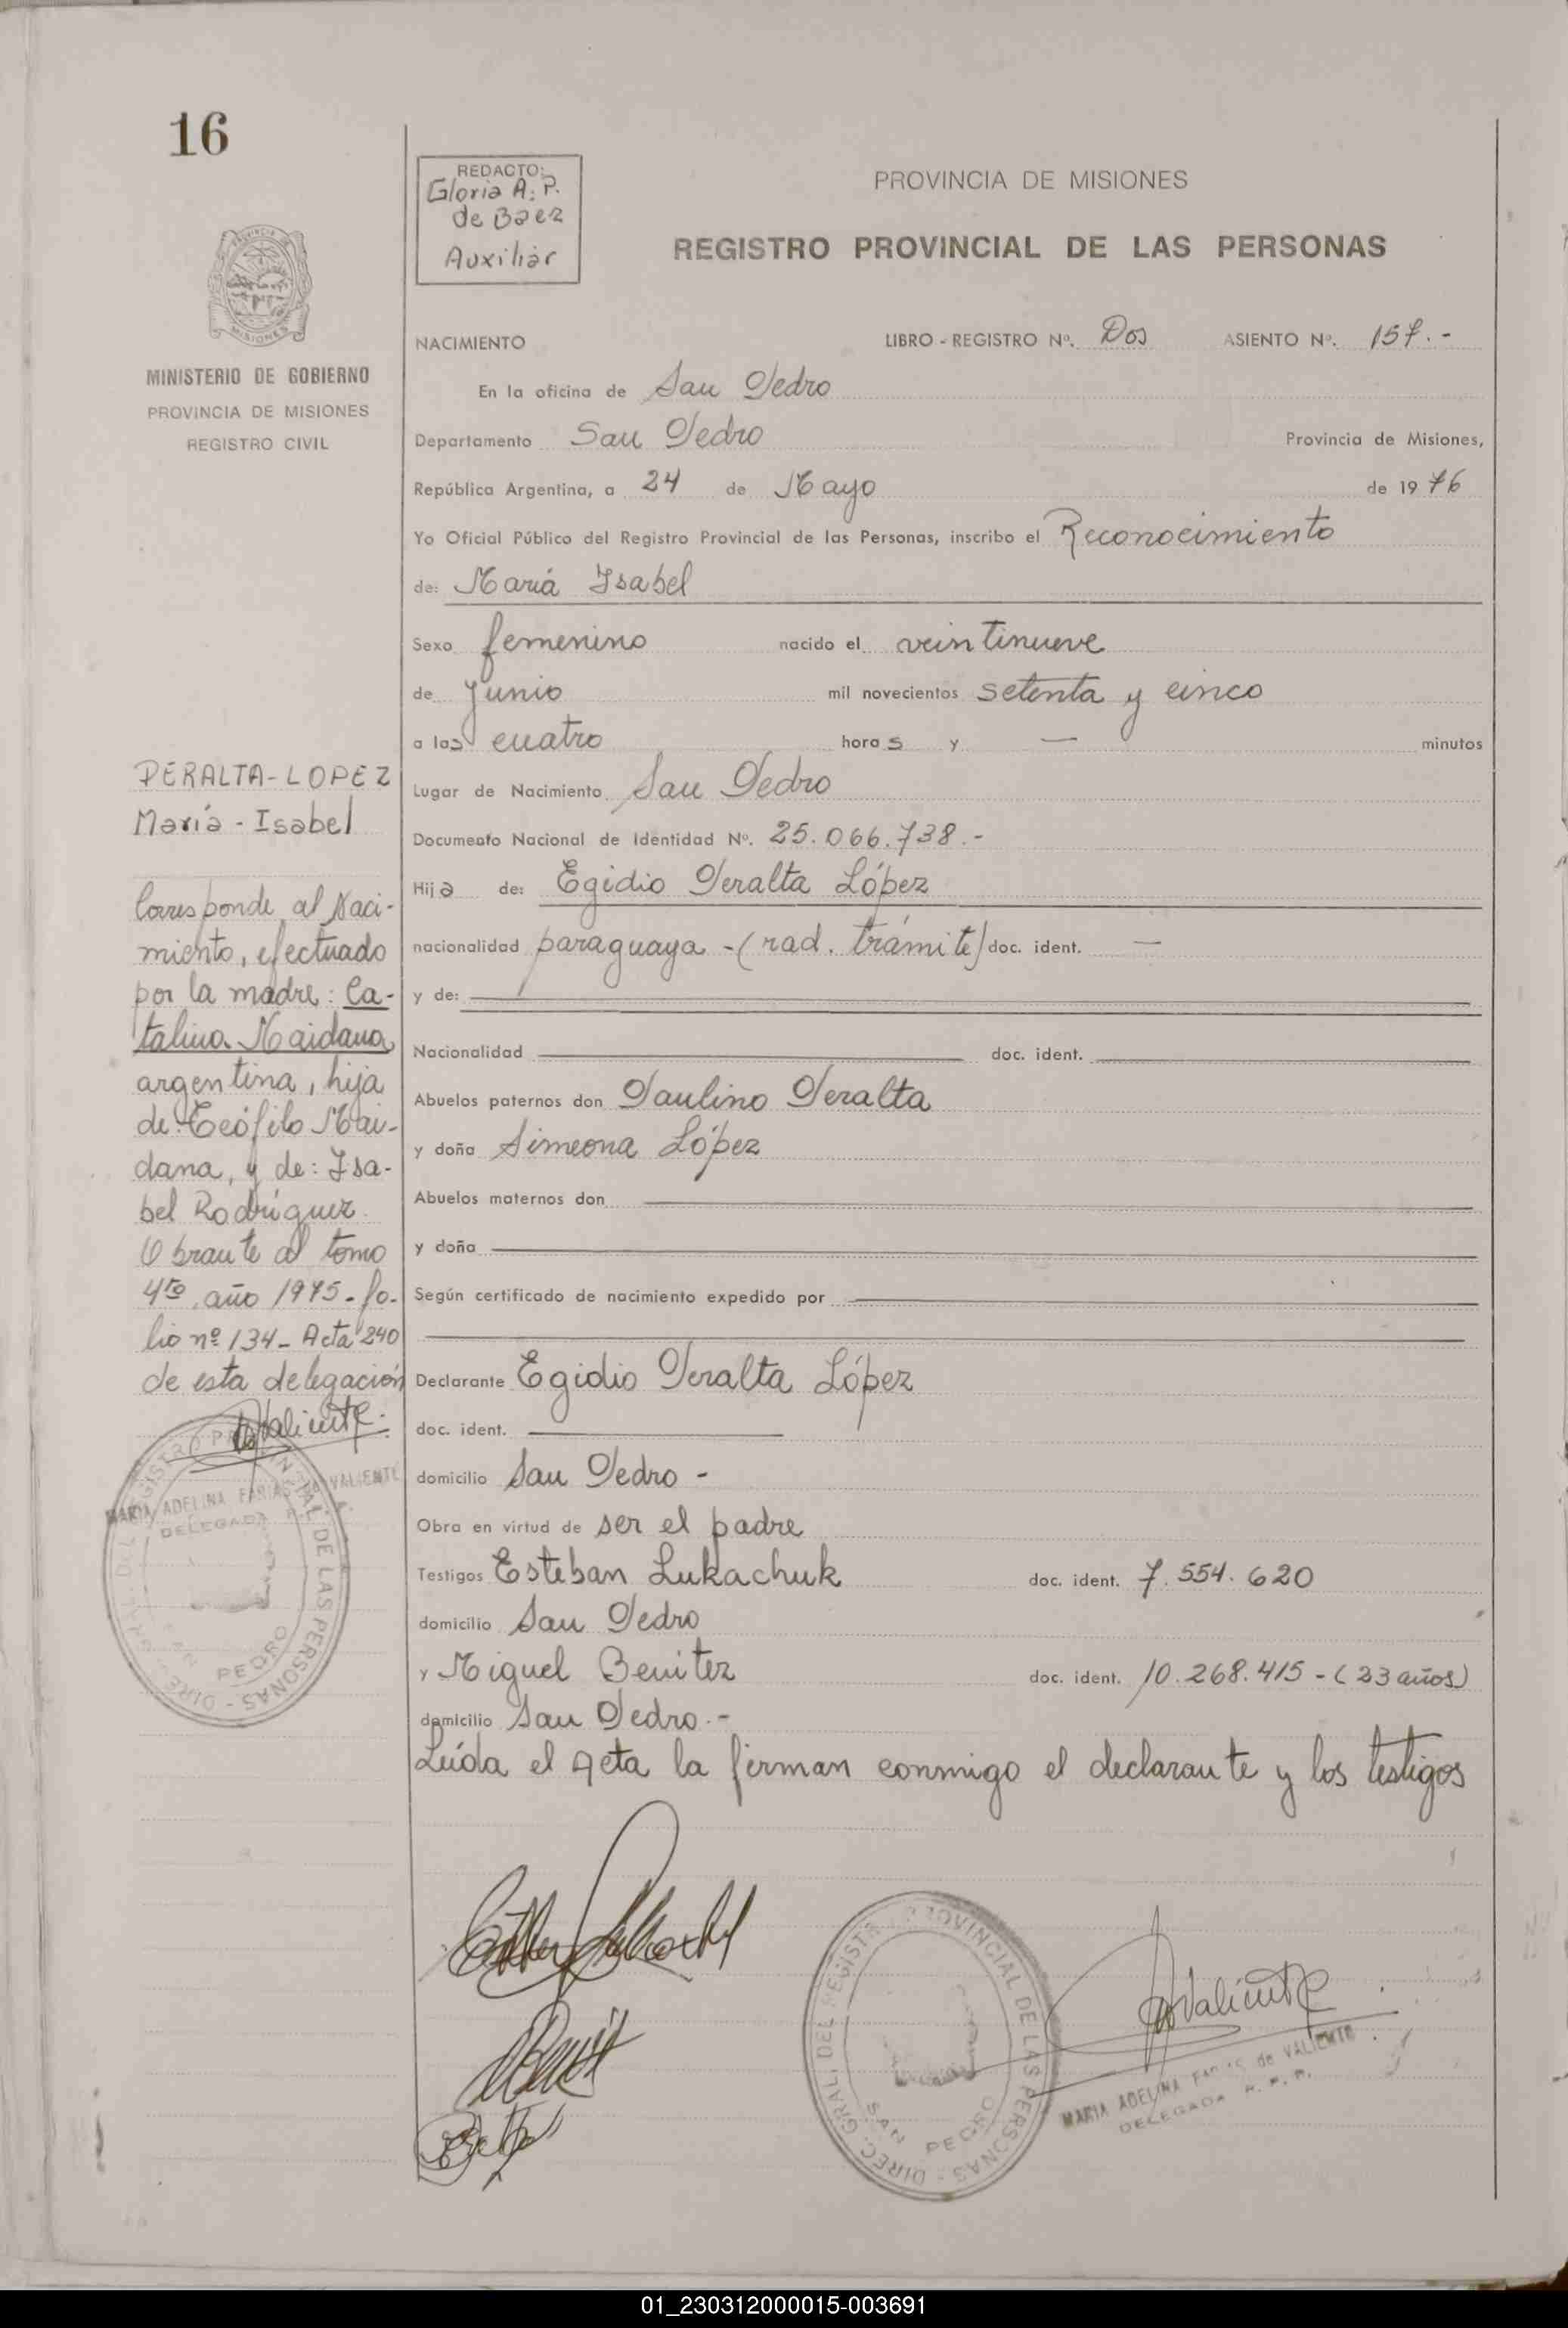 16
REDACTO:
Gloria A. P.
de Baez
Auxiliar
PROVINCIA DE MISIONES
REGISTRO PROVINCIAL DE LAS PERSONAS
MINISTERIO DE GOBIERNO
PROVINCIA DE MISIONES
REGISTRO CIVIL
NACIMIENTO LIBRO - REGISTRO Nº. Dos ASIENTO Nº. 157.-
En la oficina de San Pedro
Departamento San Pedro Provincia de Misiones,
República Argentina, a 24 de Mayo de 1976
Yo Oficial Público del Registro Provincial de las Personas, inscribo el Reconocimiento
de: María Isabel
Sexo femenino nacido el veintinueve
de Junio mil novecientos setenta y cinco
a las cuatro horas y — minutos
Lugar de Nacimiento San Pedro
Documento Nacional de Identidad Nº. 25.066.738.-
Hija de: Egidio Peralta López
nacionalidad paraguaya -(rad. trámite) doc. ident. —
y de:
Nacionalidad doc. ident.
Abuelos paternos don Paulino Peralta
y doña Simeona López
Abuelos maternos don
y doña
Según certificado de nacimiento expedido por
Declarante Egidio Peralta López
doc. ident.
domicilio San Pedro -
Obra en virtud de ser el padre
Testigos Esteban Lukachuk doc. ident. 7.554.620
domicilio San Pedro
y Miguel Benitez doc. ident. 10.268.415 - (23 años)
domicilio San Pedro.-
Leída el Acta la firman conmigo el declarante y los testigos
PERALTA-LOPEZ
María - Isabel
Corresponde al Naci-
miento, efectuado
por la madre: Ca-
talina Maidana
argentina, hija
de: Teófilo Mai-
dana, y de: Isa-
bel Rodríguez.
Obrante al tomo
4to. año 1975 - fo-
lio nº 134 - Acta 240
de esta delegación
Valiente
MARIA ADELINA FARIAS de VALIENTE
DELEGADA R. P. P.
DIREC. GRAL. DEL REGISTRO PROVINCIAL DE LAS PERSONAS
SAN PEDRO
DIREC. GRAL. DEL REGISTRO PROVINCIAL DE LAS PERSONAS
SAN PEDRO
Valiente
MARIA ADELINA FARIAS de VALIENTE
DELEGADA R. P. P.
01_230312000015-003691